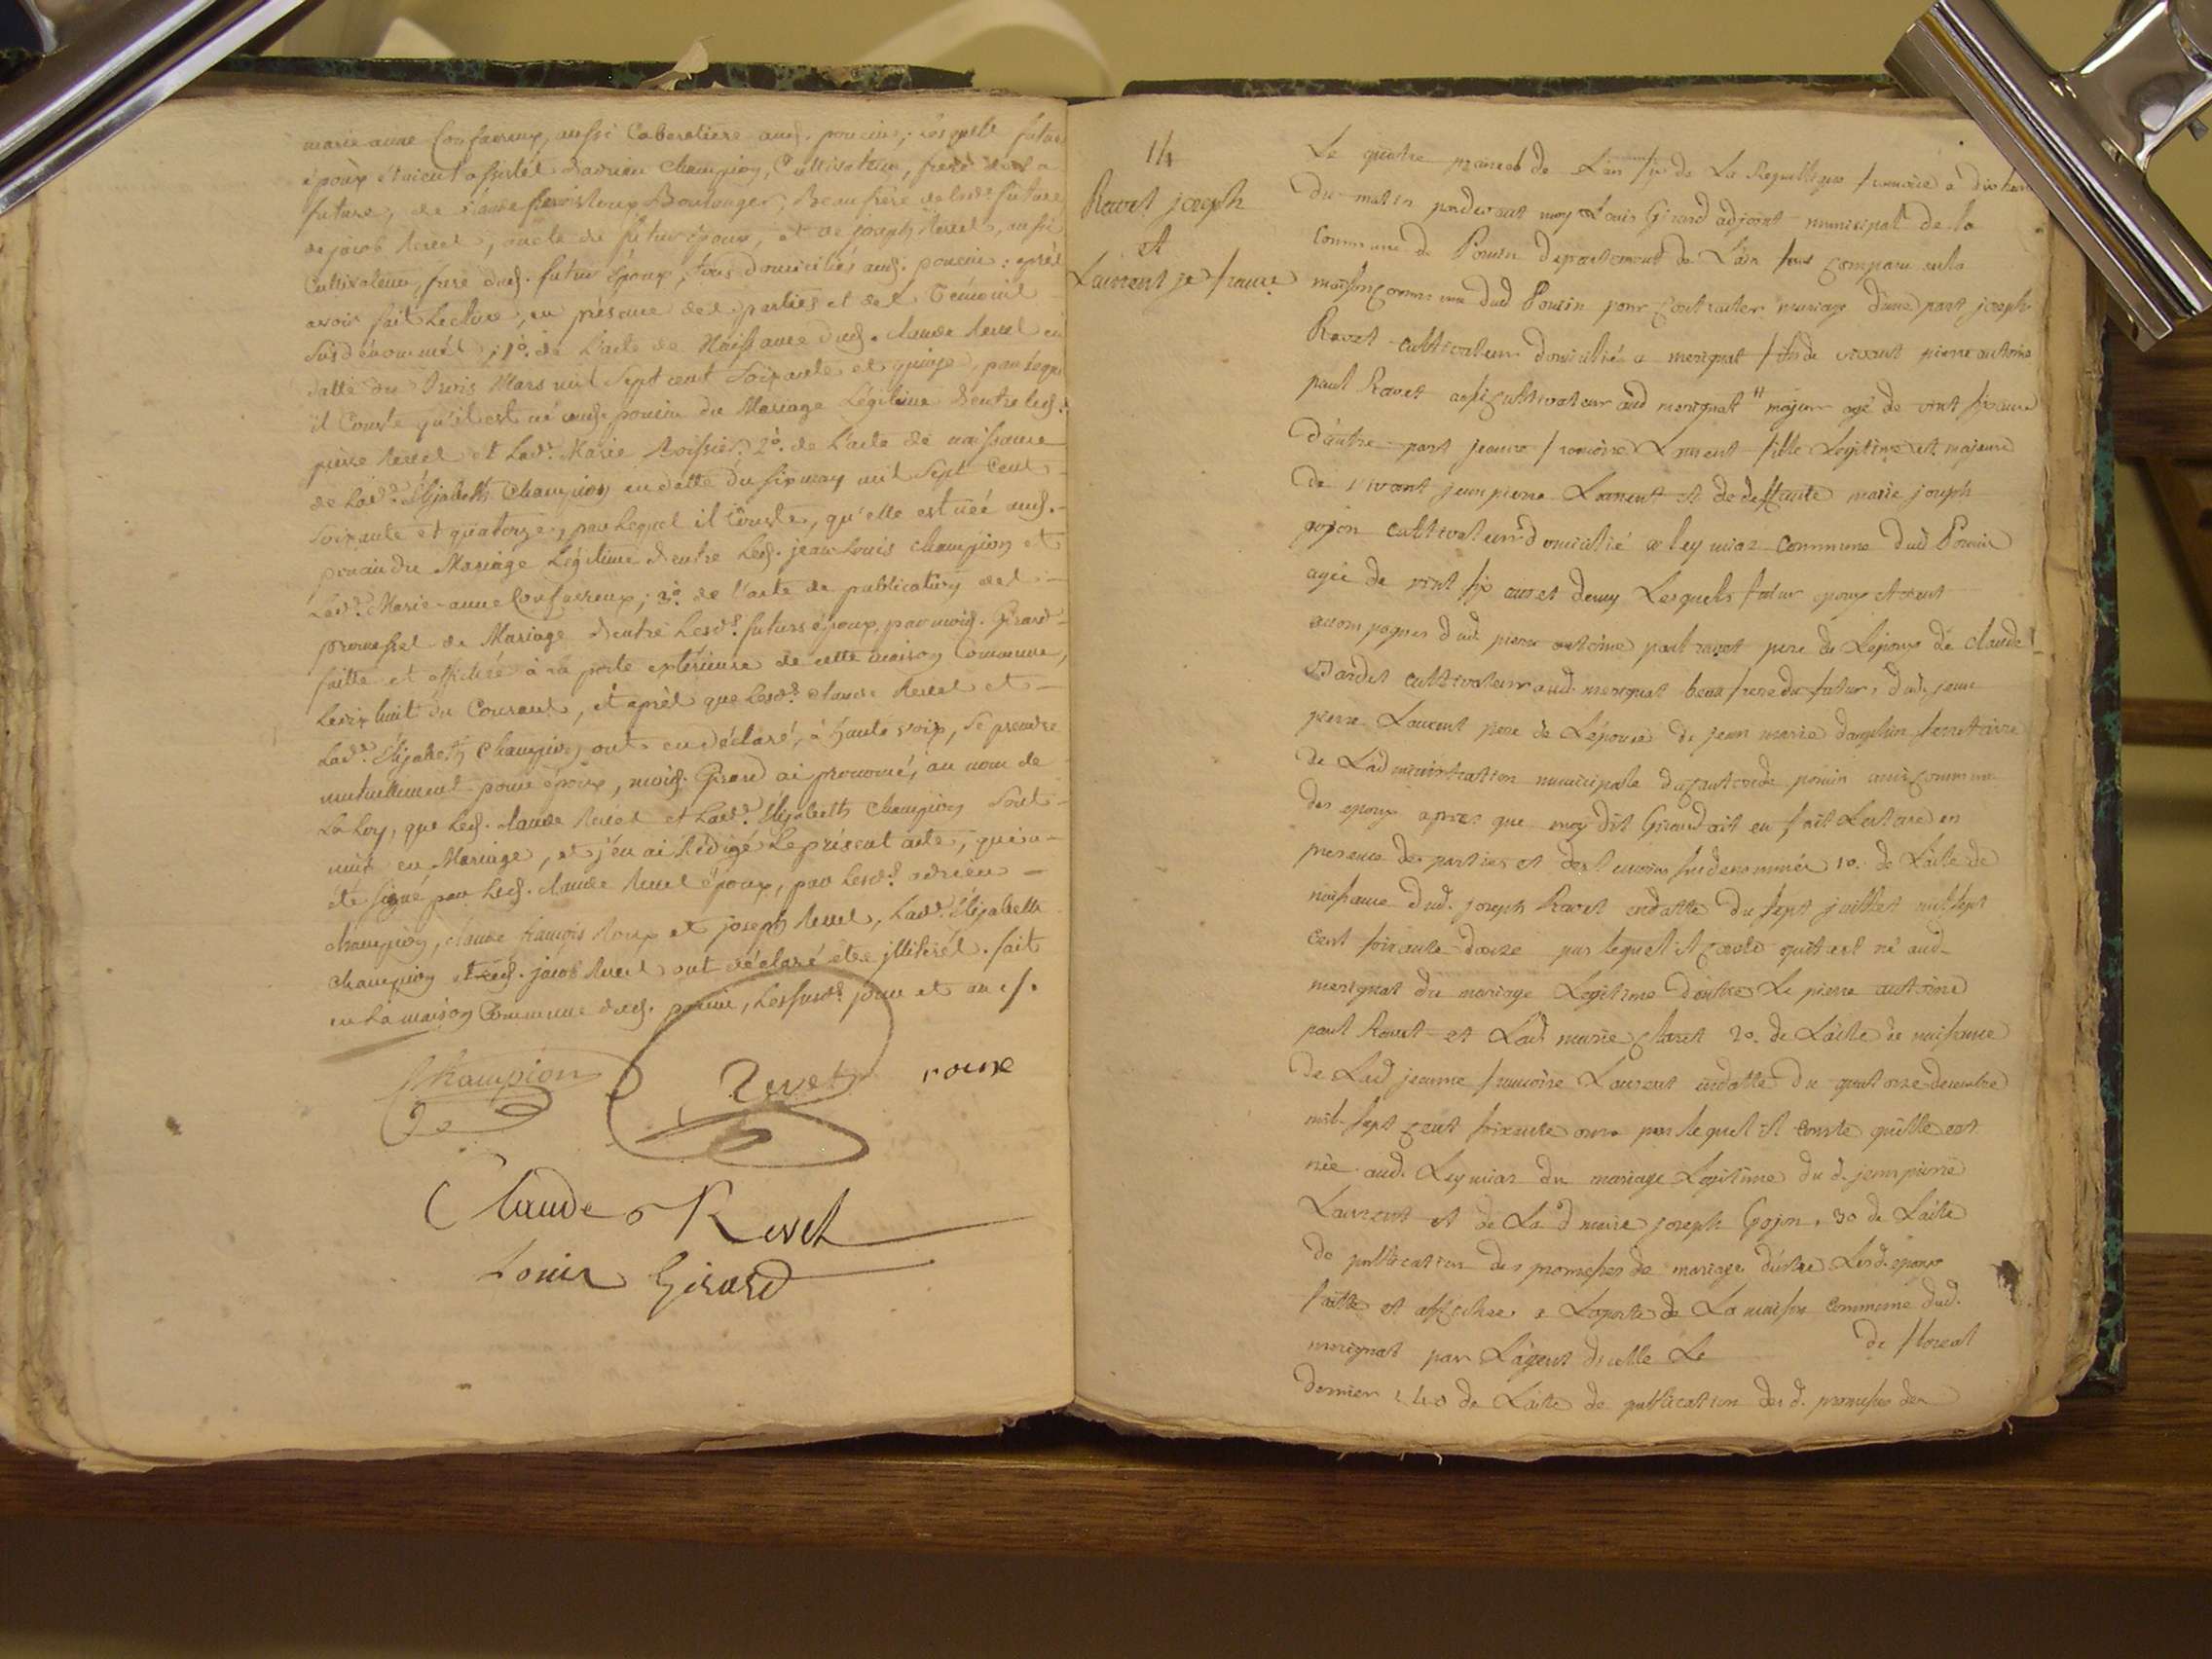 marie anne Confavreux, aussi Cabaretiere aud. poncin; Lesquels futurs
époux étoient assistés d'adrien Champion, Cultivateur, frere de la
future, de claude francois Roux Boulanger, Beaufrère de lad.e future
de jacob Revel, oncle du futur époux, et de joseph Revel, aussi
Cultivateur, frere dud. futur époux, tous domiciliés aud. poncin; après
avoir fait Lecture, en présence des parties et des Témoins
susdénommés; 1°. de L'acte de Naissance dud. claude Revel en
datte du trois Mars mil Sept cent Soixante et quinze, par lequel
il Conste qu'il est né aud. poncin du Mariage Légitime d'entre led.
pierre Revel et Lad.e Marie Boissier; 2°. de L'acte de naissance
de Lad.e Elizabeth Champion en datte du six may mil Sept Cent
soixante et quatorze, par Lequel il Conste, qu'elle est née aud.
poncin du Mariage Légitime d'entre Led. jean Louis champion et
Lad.e Marie-anne Confavreux; 3°. de l'acte de publication des
promesses de Mariage d'entre Lesd.s futurs époux, par moid. Girard
faitte et affichée à la porte extérieure de cette maison Commune,
Le dix huit du Courant, et après que Lesd.s claude Revel et
Lad.e Elizabeth Champion ont eu déclaré, à haute voix, se prendre
mutuellement pour époux, moid. Girard ai prononcé, au nom de
La Loy, que Led. claude Revel et Lad.e Elizabeth Champion sont
unis en Mariage, et j'en ai Rédigé Le présent acte, qui a
été signé par Led. claude Revel époux, par Lesd.s adrien
champion, claude françois Roux et joseph Revel, Lad.e Elizabeth
champion et led. jacob Revel ont déclaré être illitérés. fait
en La maison Commune dud. poncin, Les susd.s jour et an ./.
Champion Revel roux
Claude Revel
Louis Girard
14
Ravet joseph
et
Laurent je france
Le quatre prairial de L'an six de La Republique francoise a dix heure
du matin pardevant moy Louis Girard adjoint municipal de la
Commune de Poncin departement de L'ain sont comparu en la
maison commune dud Poncin pour contracter mariage d'une part joseph
Ravet cultivateur domicilié a merignat fils de vivant pierre antoine
paul Ravet aussi cultivateur aud merignat majeur agé de vint six ans
d'autre part jeanne francoise Laurent fille Legitime et majeure
de vivant jean pierre Laurent et de deffunte marie joseph
gojon cultivateur domicilié a leymiat commune dud Poncin
agée de vint six ans et demy Lesquels futur epoux etoient
accompagnes dud. pierre antoine paul ravet pere de L'epoux de claude
Dardet cultivateur aud. merignat beau frere du futur, dud. jean
pierre Laurent pere de L'épouse de jean marie dauphin secretaire
de L'administration municipale du canton de poncin amis commun
des epoux apres que moy dit Girard ait eu fait Lecture en
presence des parties et des temoins susdenommés 1o. de L'acte de
naissance dud. joseph Ravet endatte du sept juillet mil sept
cent soixante-douze par lequel il conste quil est né aud.
merignat du mariage Legitime d'entre Le pierre antoine
paul Ravet et Lad marie Claret 2o. de L'acte de naissance
de Lad jeanne francoise Laurent endatte du quatorze decembre
mil sept cent soixante onze par lequel il conste quelle est
née aud. Leymiat du mariage Legitime du d. jean pierre
Laurent et de La d marie joseph Gojon, 3o de L'acte
de publication des promesses de mariage d'entre Lesd. epoux
faitte et affichee a La porte de La maison commune dud.
merignat par L'agent dicelle Le de floreal
dernier 4o de L'acte de publication des d. promesses de